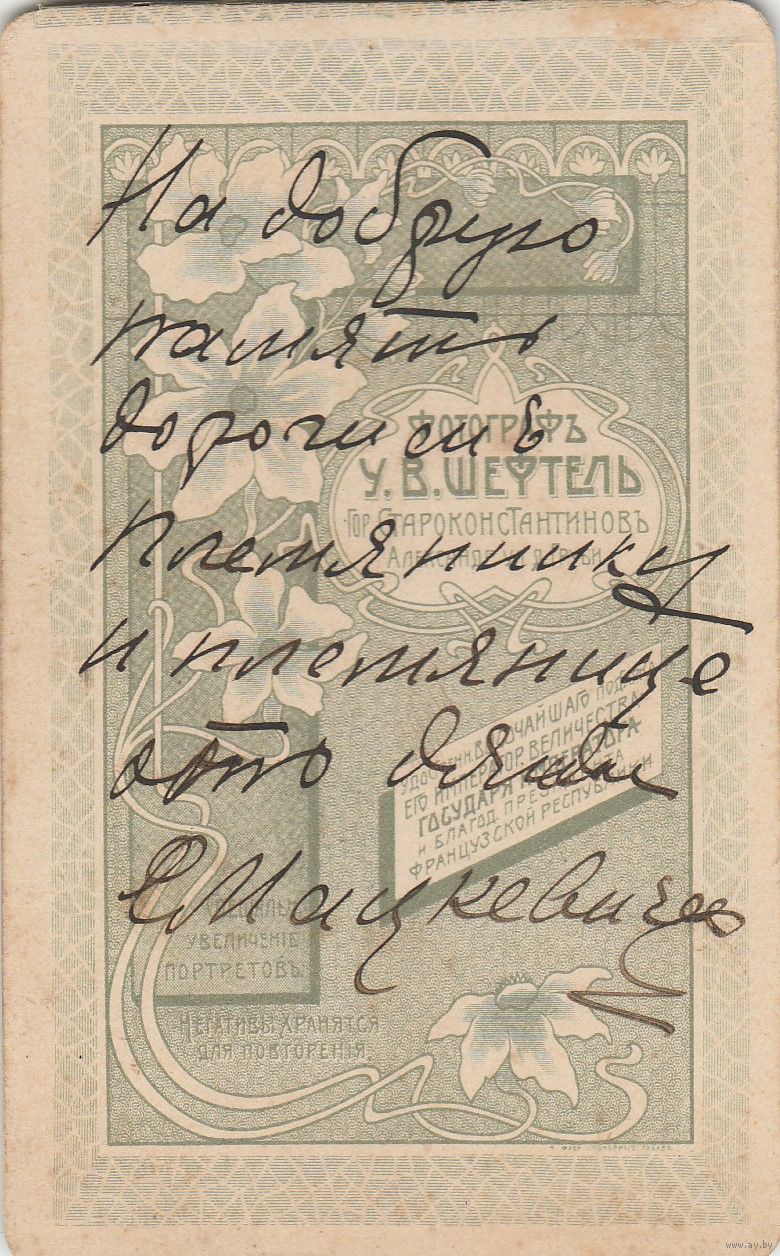 На добрую
память
дорогимъ
племяннику
и племянице
отъ дяди
Е Мацкевича
ФОТОГРАФЪ
У. В. ШЕФТЕЛЬ
ГОР. СТАРОКОНСТАНТИНОВЪ
УДОСТОЕН. ВЫСОЧАЙШАГО
ЕГО ИМПЕРАТОР. ВЕЛИЧЕСТВА
ГОСУДАРЯ ИМПЕРАТОРА
И БЛАГОД. ПРЕЗИДЕНТА
ФРАНЦУЗСКОЙ РЕСПУБЛИКИ
УВЕЛИЧЕНІЕ
ПОРТРЕТОВЪ
НЕГАТИВЫ ХРАНЯТСЯ
ДЛЯ ПОВТОРЕНІЯ.
www.ay.by